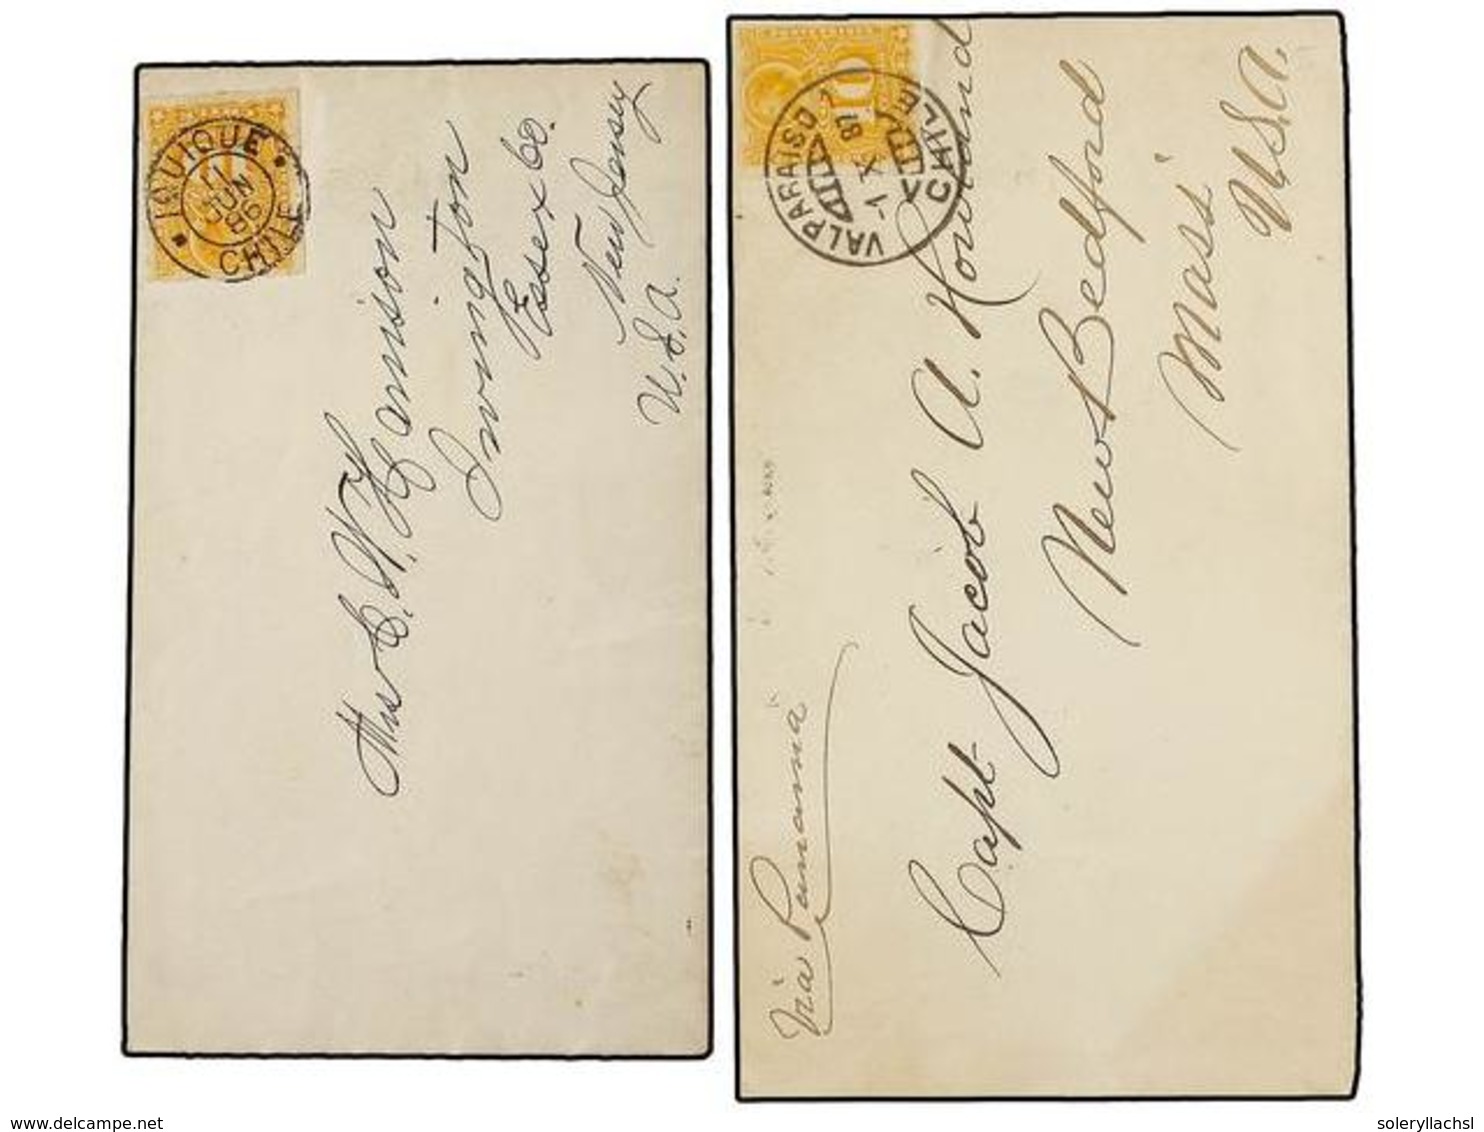 IQUIQUE
11
JUN
86
CHILE
Mrs C. N. Harrison
Irvington
Essex Co.
New Jersey
U.S.A.
10
VALPARAISO
1 IX 87
CHILE
Via Panamá
Capt Jacob A. Howland
New Bedford
Mass
U.S.A.
soleryllachsl